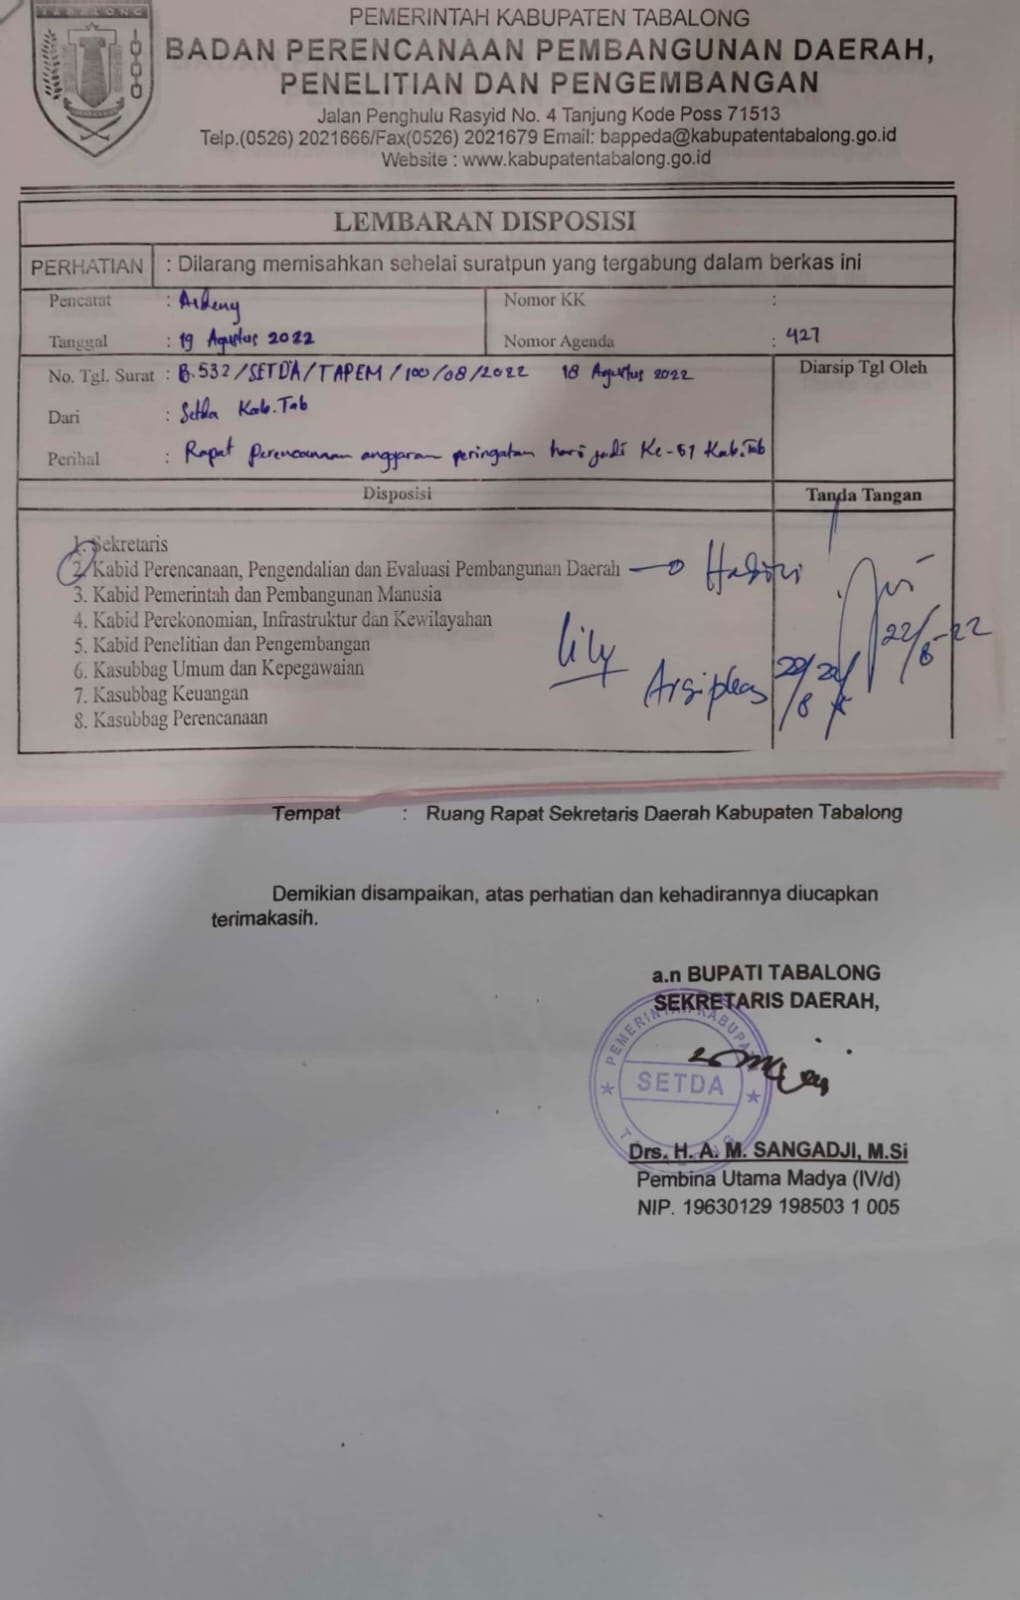 TABALONG
PEMERINTAH KABUPATEN TABALONG
BADAN PERENCANAAN PEMBANGUNAN DAERAH,
PENELITIAN DAN PENGEMBANGAN
Jalan Penghulu Rasyid No. 4 Tanjung Kode Poss 71513
Telp.(0526) 2021666/Fax(0526) 2021679 Email: bappeda@kabupatentabalong.go.id
Website : www.kabupatentabalong.go.id
LEMBARAN DISPOSISI
PERHATIAN : Dilarang memisahkan sehelai suratpun yang tergabung dalam berkas ini
Pencatat : Nomor KK :
Tanggal : 19 Agustus 2022 Nomor Agenda : 427
No. Tgl. Surat : B.532/SETDA/TAPEM/100/08/2022 18 Agustus 2022 Diarsip Tgl Oleh
Dari : Setda Kab. Tab
Perihal : Rapat Perencanaan anggaran peringatan hari jadi Ke-57 Kab. Tab
Disposisi Tanda Tangan
1. Sekretaris
2. Kabid Perencanaan, Pengendalian dan Evaluasi Pembangunan Daerah Hadiri
3. Kabid Pemerintah dan Pembangunan Manusia
4. Kabid Perekonomian, Infrastruktur dan Kewilayahan
5. Kabid Penelitian dan Pengembangan lily 22/8-22
6. Kasubbag Umum dan Kepegawaian
7. Kasubbag Keuangan
8. Kasubbag Perencanaan
Tempat : Ruang Rapat Sekretaris Daerah Kabupaten Tabalong
Demikian disampaikan, atas perhatian dan kehadirannya diucapkan
terimakasih.
a.n BUPATI TABALONG
SEKRETARIS DAERAH,
SETDA
Drs. H. A. M. SANGADJI, M.Si
Pembina Utama Madya (IV/d)
NIP. 19630129 198503 1 005